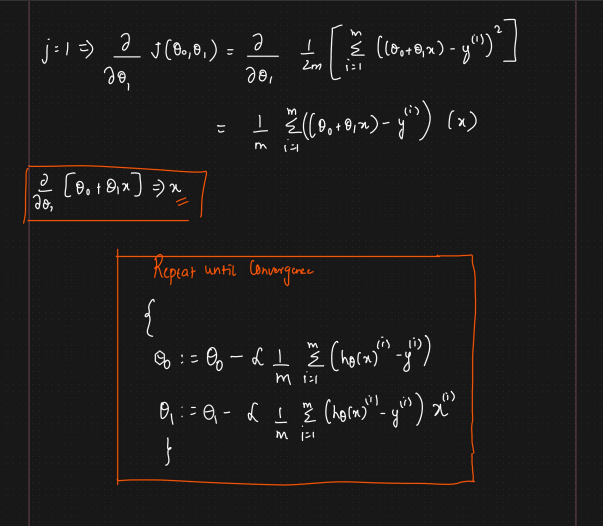 j=1 ⇒ ∂/∂θ₁ J(θ₀,θ₁) = ∂/∂θ₁ 1/2m [ Σᵢ₌₁ᵐ ((θ₀+θ₁x) − y⁽ⁱ⁾)² ]
= 1/m Σᵢ₌₁ᵐ ((θ₀+θ₁x) − y⁽ⁱ⁾) (x)
∂/∂θ₁ [θ₀+θ₁x] ⇒ x
Repeat until Convergence
{
θ₀ := θ₀ − α 1/m Σᵢ₌₁ᵐ (hθ(x)⁽ⁱ⁾ − y⁽ⁱ⁾)
θ₁ := θ₁ − α 1/m Σᵢ₌₁ᵐ (hθ(x)⁽ⁱ⁾ − y⁽ⁱ⁾) x⁽ⁱ⁾
}